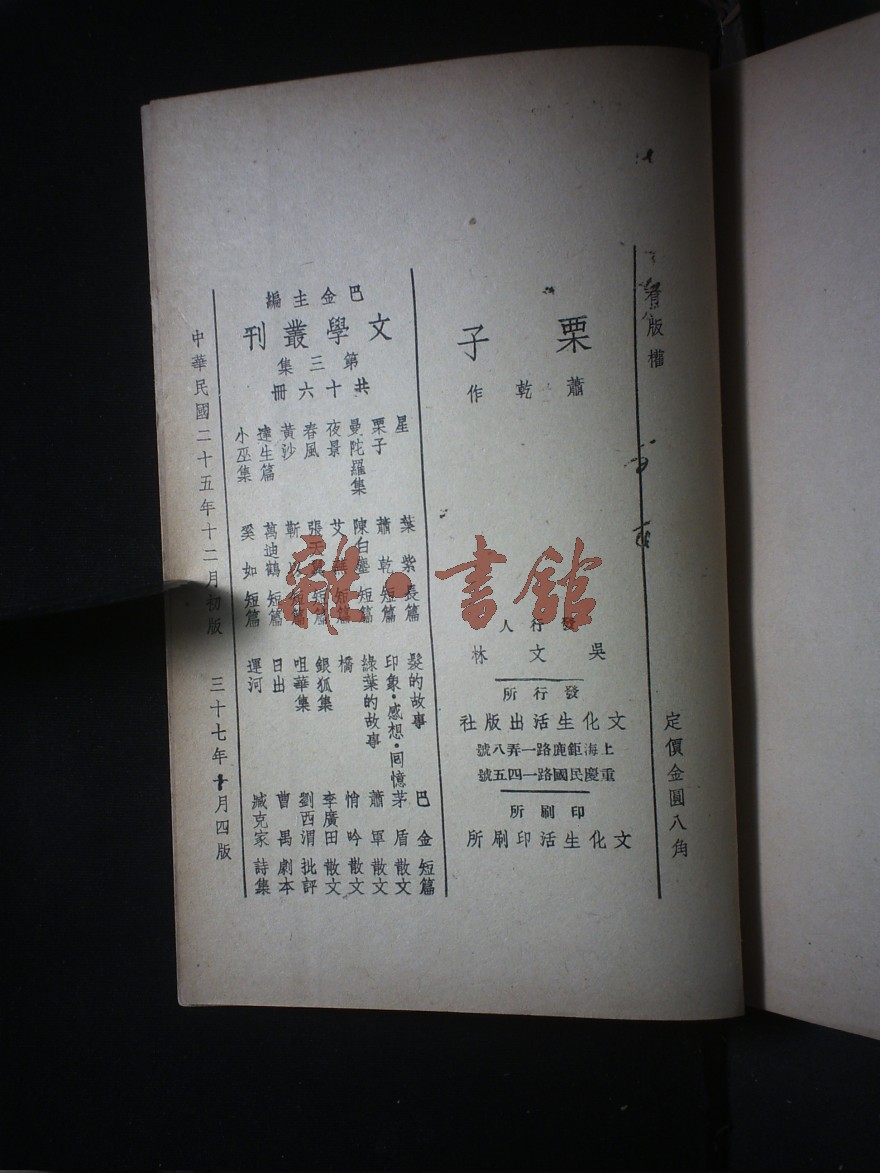 有版權
定價金圓八角
栗子
蕭乾作
發行人
吳文林
發行所
文化生活出版社
上海鉅鹿路一弄八號
重慶民國路一四五號
印刷所
文化生活印刷所
巴金主編
文學叢刊
第三集
共十六冊
星 葉紫 長篇
栗子 蕭乾 短篇
曼陀羅集 陳白塵 短篇
夜景 艾蕪 短篇
春風 張天翼 短篇
黃沙 靳以 短篇
達生篇 萬迪鶴 短篇
小巫集 奚如 短篇
髮的故事 巴金 短篇
印象·感想·回憶 茅盾 散文
綠葉的故事 蕭軍 散文
橋 悄吟 散文
銀狐集 李廣田 散文
咀華集 劉西渭 批評
日出 曹禺 劇本
運河 臧克家 詩集
中華民國二十五年十二月初版
三十七年十月四版
雜·書館